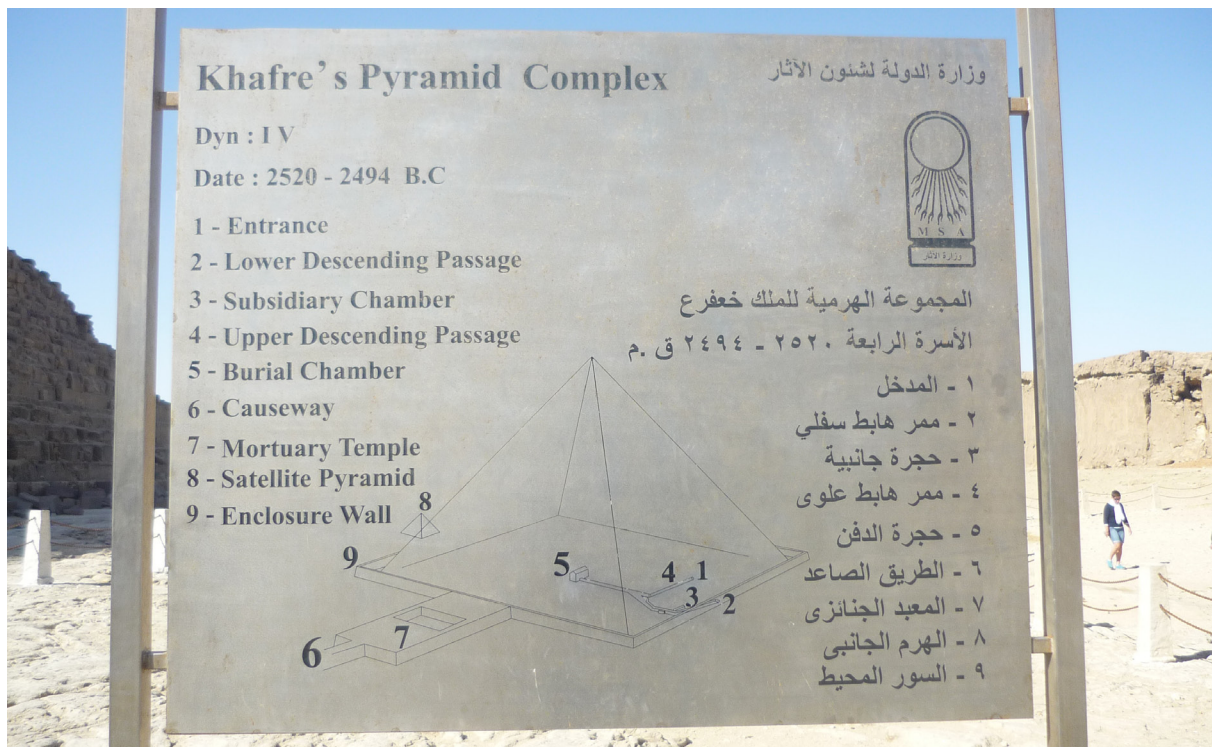 Khafre's Pyramid Complex
Dyn : I V
Date : 2520 - 2494 B.C
1 - Entrance
2 - Lower Descending Passage
3 - Subsidiary Chamber
4 - Upper Descending Passage
5 - Burial Chamber
6 - Causeway
7 - Mortuary Temple
8 - Satellite Pyramid
9 - Enclosure Wall
وزارة الدولة لشئون الآثار
M S A
وزارة الآثار
المجموعة الهرمية للملك خعفرع
الأسرة الرابعة ٢٥٢٠ - ٢٤٩٤ ق .م
١ - المدخل
٢ - ممر هابط سفلي
٣ - حجرة جانبية
٤ - ممر هابط علوى
٥ - حجرة الدفن
٦ - الطريق الصاعد
٧ - المعبد الجنائزى
٨ - الهرم الجانبى
٩ - السور المحيط
8
9
5
4
1
3
2
7
6